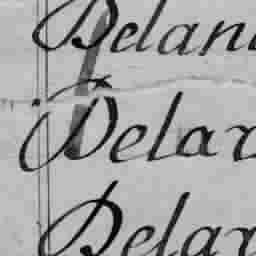 Delan
Delar
Delar